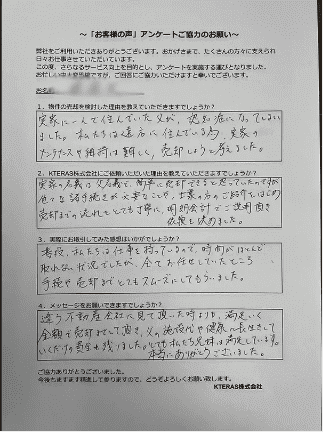 ～「お客様の声」アンケートご協力のお願い～
弊社をご利用いただきありがとうございます。おかげさまで、たくさんの方々に支えられ
日々お仕事させていただいています。
この度、さらなるサービス向上を目的とし、アンケートを実施する運びとなりました。
お忙しい中大変恐縮ですが、ご回答にご協力いただけますと幸いでございます。
お名前
1．物件の売却を検討した理由を教えていただきますでしょうか？
実家に一人で住んでいた父が、認知症になってしまい
ました。私たちは遠方に住んでいる為、実家の
メンテナンスや維持は難しく、売却しようと考えました。
2．KTERAS株式会社にご依頼いただいた理由を教えていただきますでしょうか？
実家の名義は父名義で、簡単に売却できると思っていたのですが
色々な諸手続きが必要なことや、士業の方のご紹介もはじめ
売却までの流れをとても丁寧に、明朗会計でご説明頂き
依頼を決めました。
3．実際にお取引してみた感想はいかがでしょうか？
普段、私たちは仕事を持っているので、時間がほとんど
取れない状況でしたが、全てお任せしていたところ
手続や売却までとてもスムーズにしてもらいました。
4．メッセージをお願いできますでしょうか？
違う不動産会社に見て頂いた時よりも、満足いく
金額で売却させて頂き、父の施設代や健康で長生きして
いくだけの資金も残りました。とても私たち兄妹は満足している
本当にありがとうございました。
ご協力ありがとうございました。
今後ともますます精進して参りますので、どうぞよろしくお願い致します。
KTERAS株式会社